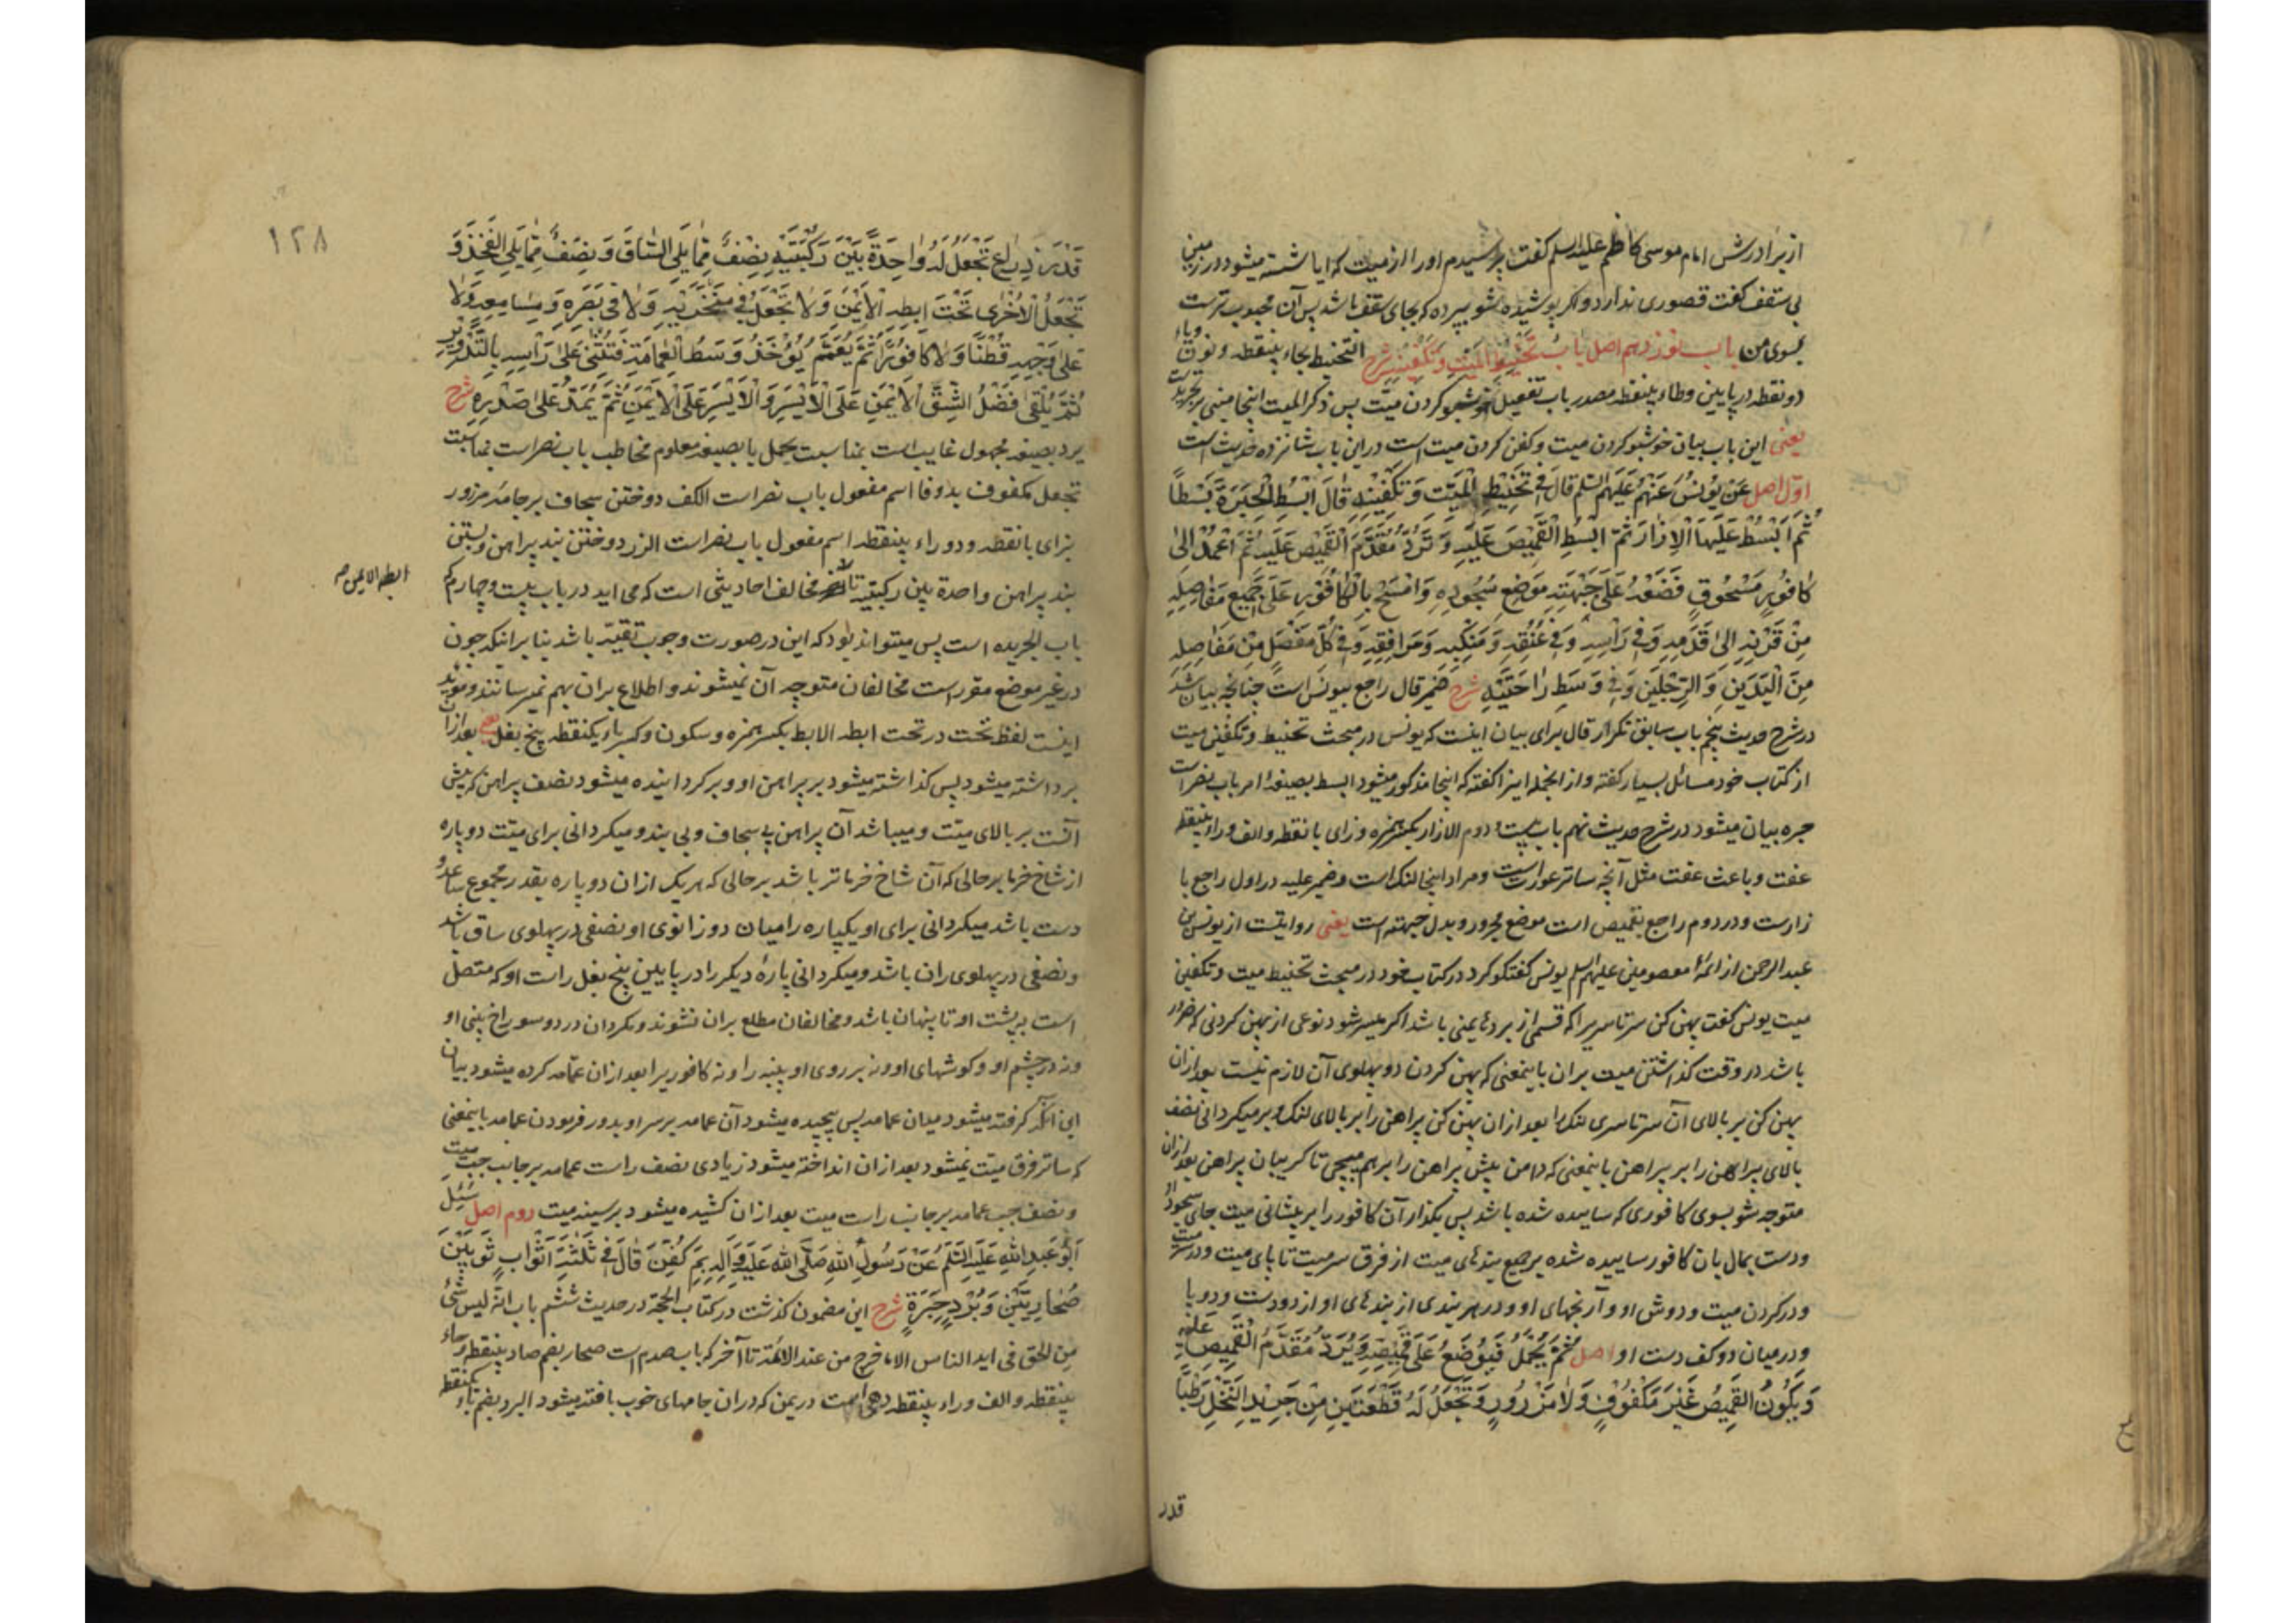 از برادرش امام موسی کاظم علیه السلم کفت پرسیدم اورا از میت که ایا شسته میشود در زمین
بی سقف کفت قصوری ندارد و اکر پوشیده شو بپرده که بجای سقف باشد پس آن محبوب ترست
بسوی من باب نوزدهم اصل باب تحنیط المیت و تکفینه شرح التحنیط بحاء بینقطه و نون و یاء
دو نقطه در پایین و طاء بینقطه مصدر باب تفعیل خوشبو کردن میت پس ذکر المیت اینجا مبنی بر تجریدست
یعنی این باب بیان خوشبو کردن میت و کفن کردن میت است در این باب شانزده حدیث است
اول اصل عَن یُونُسَ عَنْهُمْ عَلَیْهِمُ السَّلم قَالَ فِی تَحْنِیطِ الْمَیِّتِ وَ تَکْفِینِهِ قَالَ ابْسُطِ الْحِبَرَةَ بَسْطًا
ثُمَّ ابْسُطْ عَلَیْهَا الْاِزَارَ ثُمَّ ابْسُطِ الْقَمِیصَ عَلَیْهِ وَ تَرُدُّ مُقَدَّمَ الْقَمِیصِ عَلَیْهِ ثُمَّ اعْمِدْ اِلیٰ
کَافُورٍ مَسْحُوقٍ فَضَعْهُ عَلیٰ جَبْهَتِهِ مَوْضِعِ سُجُودِهِ وَ امْسَحْ بِالْکَافُورِ عَلیٰ جَمِیعِ مَفَاصِلِهِ
مِنْ قَرْنِهِ اِلیٰ قَدَمِهِ وَ فِی رَأْسِهِ وَ فِی عُنُقِهِ وَ مَنْکِبَیْهِ وَ مَرَافِقِهِ وَ فِی کُلِّ مَفْصِلٍ مِنْ مَفَاصِلِهِ
مِنَ الْیَدَیْنِ وَ الرِّجْلَیْنِ وَ فِی وَسَطِ رَاحَتَیْهِ شرح ضمیر قال راجع بیونس است چنانچه بیان شد
در شرح حدیث پنجم باب سابق تکرار قال برای بیان اینست که یونس در مبحث تحنیط و تکفین میت
از کتاب خود مسائل بسیار کفته و از انجمله اینرا کفته که اینجا مذکور میشود ابسط بصیغهٔ امر باب نصر است
حبره بیان میشود در شرح حدیث نهم باب بیست و دوم الازار بکسر همزه و زای با نقطه و الف و راء بینقطه
عفت و باعث عفت مثل آنچه ساتر عورت است و مراد اینجا لنک است و ضمیر علیه در اول راجع با
زارست و در دوم راجع بقمیص است موضع مجرور و بدل جبهته است یعنی روایتست از یونس بن
عبد الرحمن از ائمهٔ معصومین علیهم السلم یونس کفتکو کرد در کتاب خود در مبحث تحنیط میت و تکفین
میت یونس کفت پهن کن سرتاسریرا که قسمی از بردهای یمنی باشد اکر میسر شود نوعی از پهن کردنی که ضرور
باشد در وقت کذاشتن میت بران باینمعنی که پهن کردن دو پهلوی آن لازم نیست بعد ازان
پهن کن بر بالای آن سرتاسری لنک را بعد ازان پهن کن پراهن را بر بالای لنک و بر میکردانی نصف
بالای پراهن را بر پراهن باینمعنی که دامن پیش پراهن را برهم میپیچی تا کریبان پراهن بعد ازان
متوجه شو بسوی کافوری که ساییده شده باشد پس بکذار آن کافور را بر پیشانی میت جای سجود او
و دست بمال بان کافور ساییده شده بر جمیع بندهای میت از فرق سر میت تا پای میت و در سر میت
و در کردن میت و دوش او و آرنجهای او و در هر بندی از بندهای او از دو دست و دو پا
و در میان دو کف دست او اصل ثُمَّ یُحْمَلُ فَیُوضَعُ عَلیٰ قَمِیصِهِ وَ یُرَدُّ مُقَدَّمُ الْقَمِیصِ عَلَیْهِ
وَ یَکُونُ الْقَمِیصُ غَیْرَ مَکْفُوفٍ وَلَا مَزْرُورٍ وَ تَجْعَلُ لَهُ قِطْعَتَیْنِ مِنْ جَرِیدِ النَّخْلِ رَطْبًا
قدر
١٢٨
قَدْرَ ذِرَاعٍ تَجْعَلُ لَهُ وَاحِدَةً بَیْنَ رُکْبَتَیْهِ نِصْفٌ مِمَّا یَلِی السَّاقَ وَ نِصْفٌ مِمَّا یَلِی الْفَخِذَ وَ
تَجْعَلُ الْاُخْریٰ تَحْتَ اِبْطِهِ الْاَیْمَنِ وَلَا تَجْعَلْ فِی مَنْخِرَیْهِ وَلَا فِی بَصَرِهِ وَ مَسَامِعِهِ وَلَا
عَلیٰ وَجْهِهِ قُطْنًا وَلَا کَافُورًا ثُمَّ یُعَمَّمُ یُؤْخَذُ وَسَطُ الْعِمَامَةِ فَتُثْنیٰ عَلیٰ رَأْسِهِ بِالتَّدْوِیرِ
ثُمَّ یُلْقیٰ فَضْلُ الشِّقِّ الْاَیْمَنِ عَلَی الْاَیْسَرِ وَ الْاَیْسَرِ عَلَی الْاَیْمَنِ ثُمَّ یُمَدُّ عَلیٰ صَدْرِهِ شرح
یرد بصیغه مجهول غایب است بمناسبت یحمل یا بصیغه معلوم مخاطب باب نصر است بمناسبت
تجعل مکفوف بدو فا اسم مفعول باب نصر است الکف دوختن سجاف بر جامه مزرور
بزای با نقطه و دو راء بینقطه اسم مفعول باب نصر است الزر دوختن بند پراهن و بستن
بند پراهن واحدة بین رکبتیه تا آخر مخالف احادیثی است که می اید در باب بیست و چهارم که
ابطه الایمن صح
باب الجریده است پس میتواند بود که این در صورت وجوب تقیه باشد بنا برانکه چون
در غیر موضع مقرر است مخالفان متوجه آن نمیشوند و اطلاع بران بهم نمیرسانند و مؤید
اینست لفظ تحت در تحت ابطه الابط بکسر همزه و سکون و کسر باء یکنقطه پنج بغل یعنی بعد ازان
برداشته میشود پس کذاشته میشود بر پراهن او و برکردانیده میشود نصف پراهن که پیش
آنست بر بالای میت و میباشد آن پراهن بی سجاف و بی بند و میکردانی برای میت دو پاره
از شاخ خرما بر حالی که آن شاخ خرما تر باشد بر حالی که هر یک ازان دو پاره بقدر مجموع ساعد و
دست باشد میکردانی برای او یکپاره را میان دو زانوی او نصفی در پهلوی ساق باشد
و نصفی در پهلوی ران باشد و میکردانی پارهٔ دیکر را در پایین پنج بغل راست او که متصل
است بپشت او تا پنهان باشد و مخالفان مطلع بران نشوند و مکردان در دو سوراخ بینی او
و نه در چشم او و کوشهای او و نه بر روی او پنبه را و نه کافور یرا بعد ازان عمامه کرده میشود بیان
این انکه کرفته میشود میان عمامه پس پیچیده میشود آن عمامه بر سر او بدور فرمودن عمامه باینمعنی
که ساتر فرق میت نمیشود بعد ازان انداخته میشود زیادی نصف راست عمامه بر جانب چپ میت
و نصف چپ عمامه بر جانب راست میت بعد ازان کشیده میشود بر سینه میت دوم اصل سُئِلَ
اَبُو عَبْدِ اللهِ عَلَیْهِ السَّلم عَنْ رَسُولِ اللهِ صَلَّی اللهُ عَلَیْهِ وَ آلِهِ بِمَ کُفِّنَ قَالَ فِی ثَلٰثَةِ اَثْوَابٍ ثَوْبَیْنِ
صُحَارِیَّیْنِ وَ بُرْدِ حِبَرَةٍ شرح این مضمون کذشت در کتاب الحجة در حدیث ششم باب انه لیس شیٔ
من الحق فی اید الناس الا ما خرج من عند الائمة تا آخر که باب صدم است صحار بضم صاد بینقطه و حاء
بینقطه و الف و راء بینقطه دهی است در یمن که دران جامهای خوب بافته میشود البرد بضم باء یکنقطه